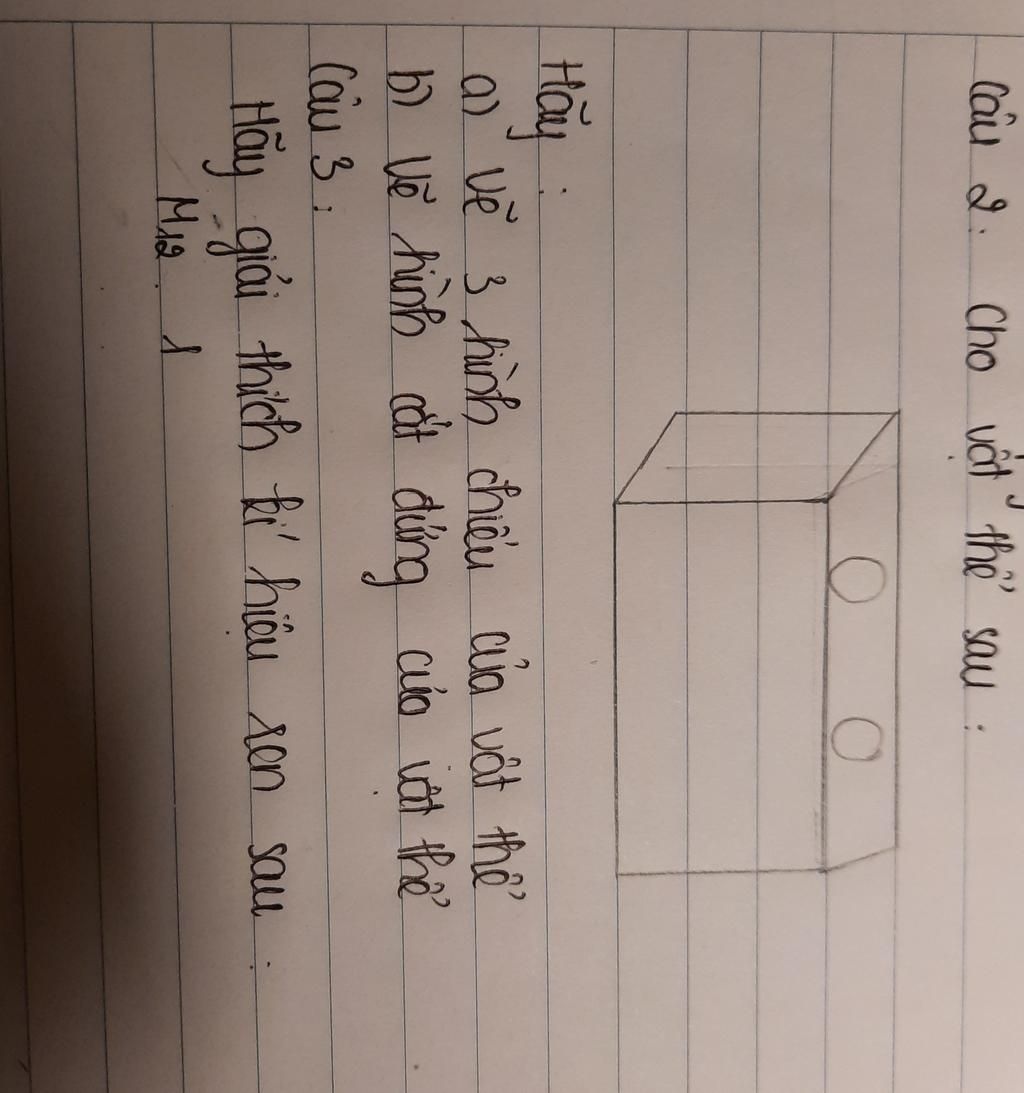 Câu 2. Cho vật thể sau :
Hãy :
a) Vẽ 3 hình chiếu của vật thể
b) Vẽ hình cắt đứng của vật thể
Câu 3 :
Hãy giải thích kí hiệu ren sau :
M12 1